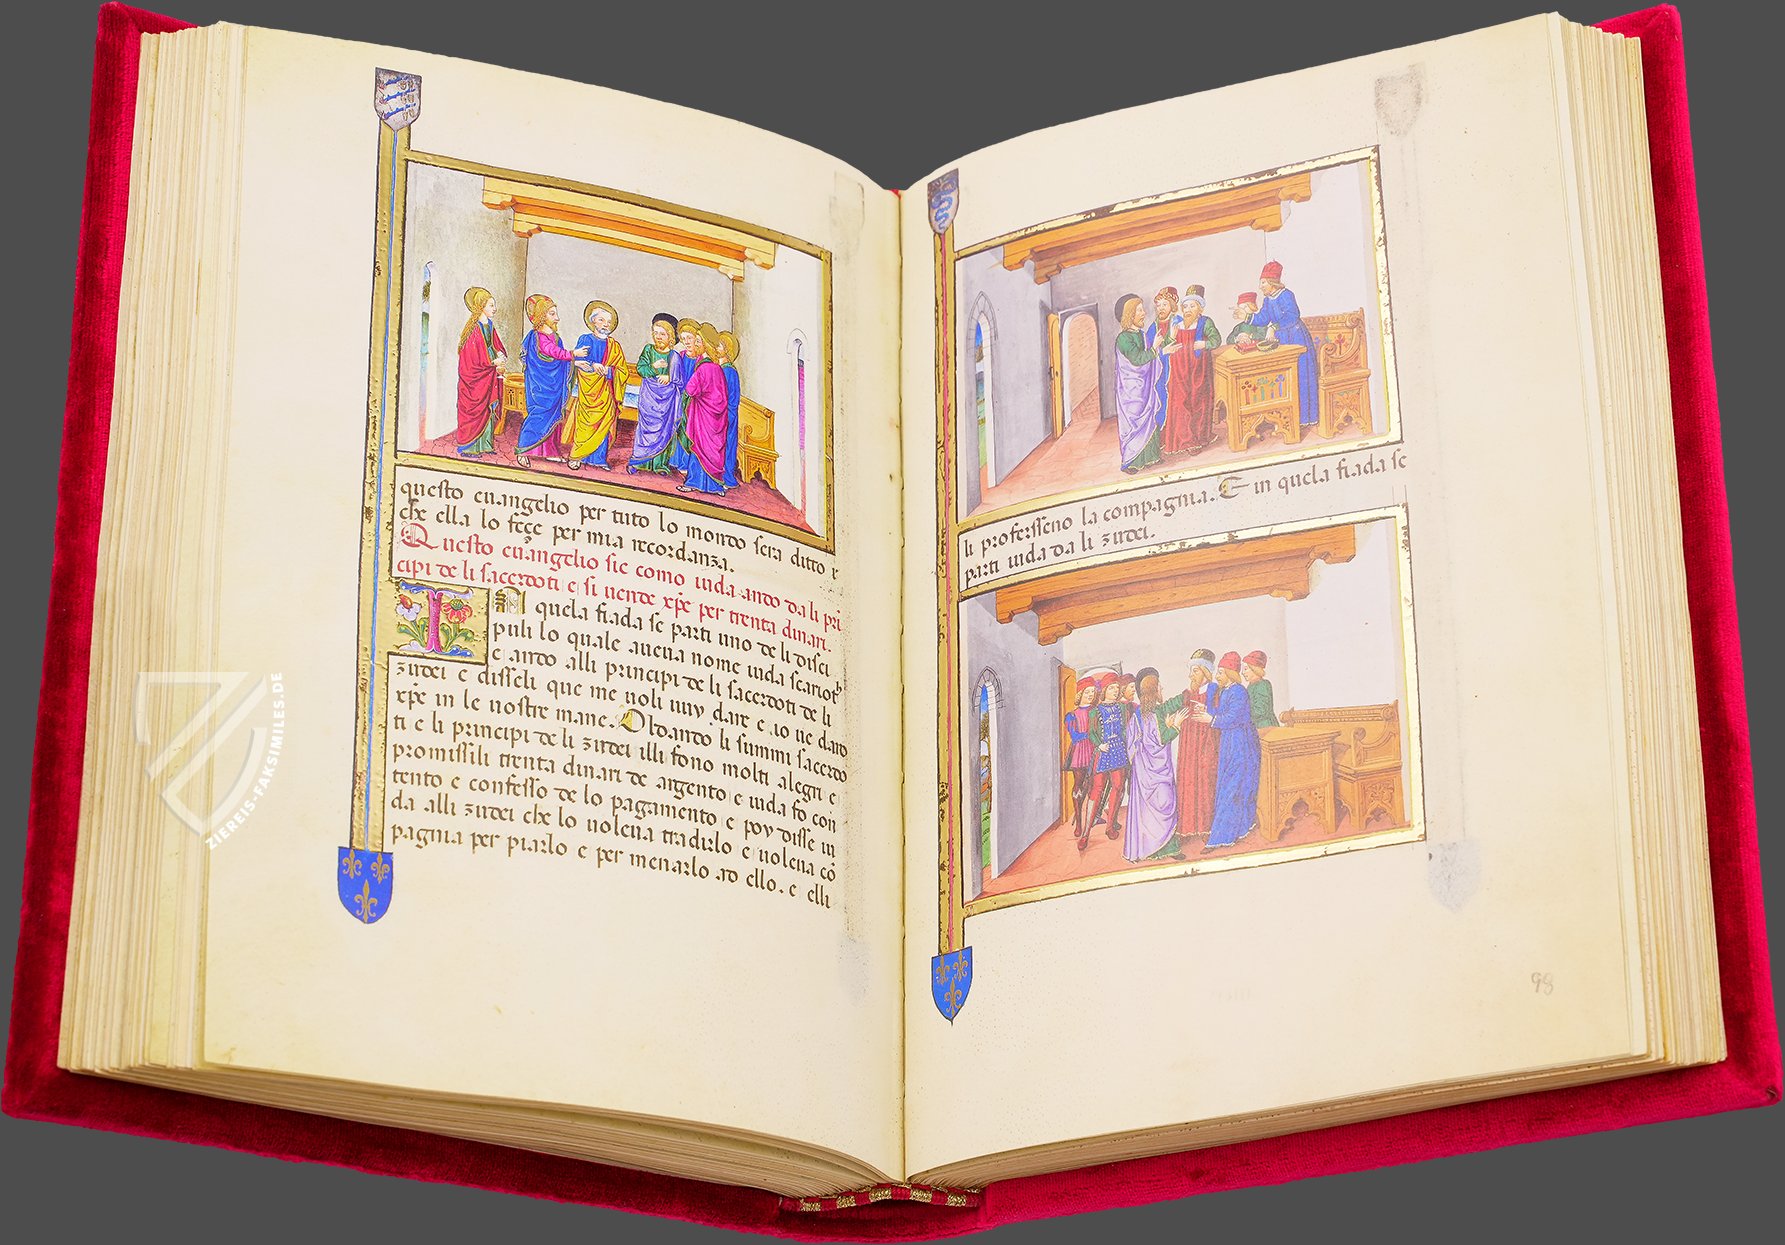 questo euangelio per tuto lo mondo sera ditto z
che ella lo feçe per mia recordanza.
Questo euangelio sie como iuda ando da li pri
cipi de li sacerdoti e si uende xp̄e per trenta dinari.
IN quela fiada se parti uno de li disci
puli lo quale aueua nome iuda scarioth
e ando alli principi de li sacerdoti de li
zudei e disseli que me uoli uuy dare e io ue daro
xp̄e in le uostre mane. Oldando li summi sacerdo
ti e li principi de li zudei illi fono molti alegri e
promissili trenta dinari de argento e iuda fo con
tento e confesso de lo pagamento e poy disse iu
da alli zudei che lo uoleua tradirlo e uoleua cō
pagnia per piarlo e per menarlo ad ello. e elli
li proferisseno la compagnia. E in quela fiada se
parti iuda da li zudei.
98
ZIEREIS-FAKSIMILES.DE